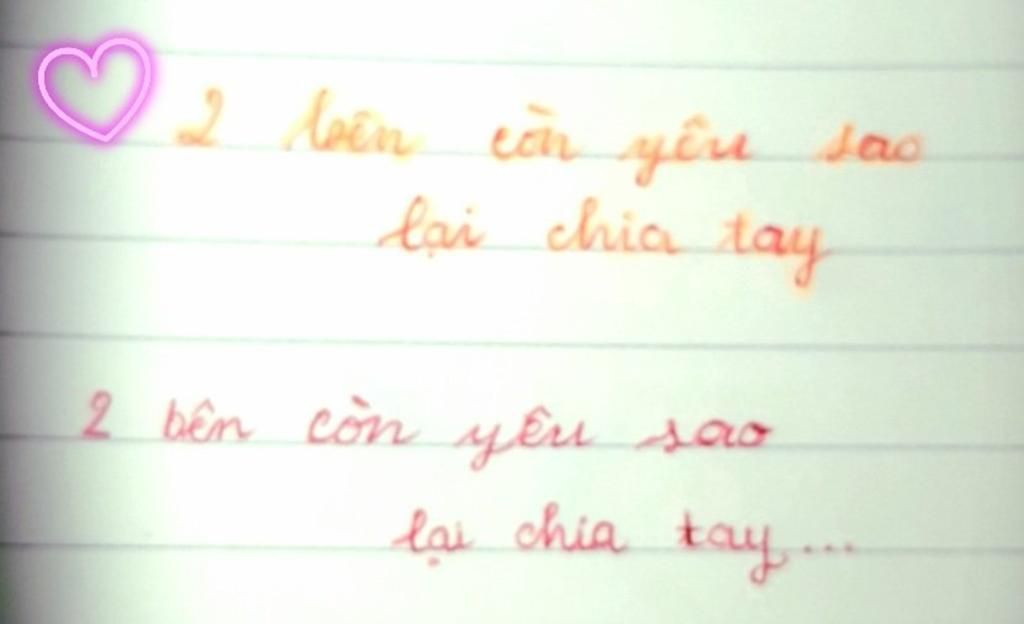 2 bên còn yêu sao
lại chia tay
2 bên còn yêu sao
lại chia tay...